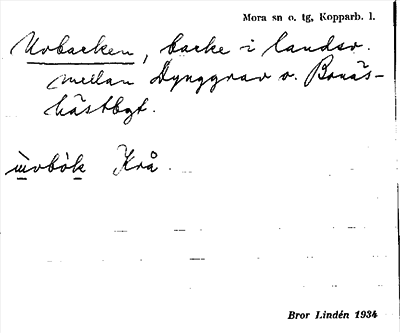 Mora sn o. tg, Kopparb. l.
Uvbacken, backe i landsv.
mellan Dynggrav o. Bonäs-
hästbgt.
ùvbòk Krå.
Bror Lindén 1934